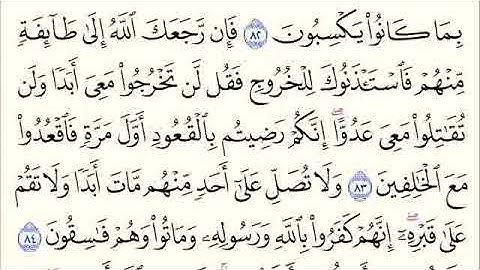 بِمَا كَانُوا۟ يَكْسِبُونَ ٨٢ فَإِن رَّجَعَكَ ٱللَّهُ إِلَىٰ طَآئِفَةٍ
مِّنْهُمْ فَٱسْتَـْٔذَنُوكَ لِلْخُرُوجِ فَقُل لَّن تَخْرُجُوا۟ مَعِىَ أَبَدًا وَلَن
تُقَـٰتِلُوا۟ مَعِىَ عَدُوًّا ۖ إِنَّكُمْ رَضِيتُم بِٱلْقُعُودِ أَوَّلَ مَرَّةٍ فَٱقْعُدُوا۟
مَعَ ٱلْخَـٰلِفِينَ ٨٣ وَلَا تُصَلِّ عَلَىٰٓ أَحَدٍ مِّنْهُم مَّاتَ أَبَدًا وَلَا تَقُمْ
عَلَىٰ قَبْرِهِۦٓ ۖ إِنَّهُمْ كَفَرُوا۟ بِٱللَّهِ وَرَسُولِهِۦ وَمَاتُوا۟ وَهُمْ فَـٰسِقُونَ ٨٤